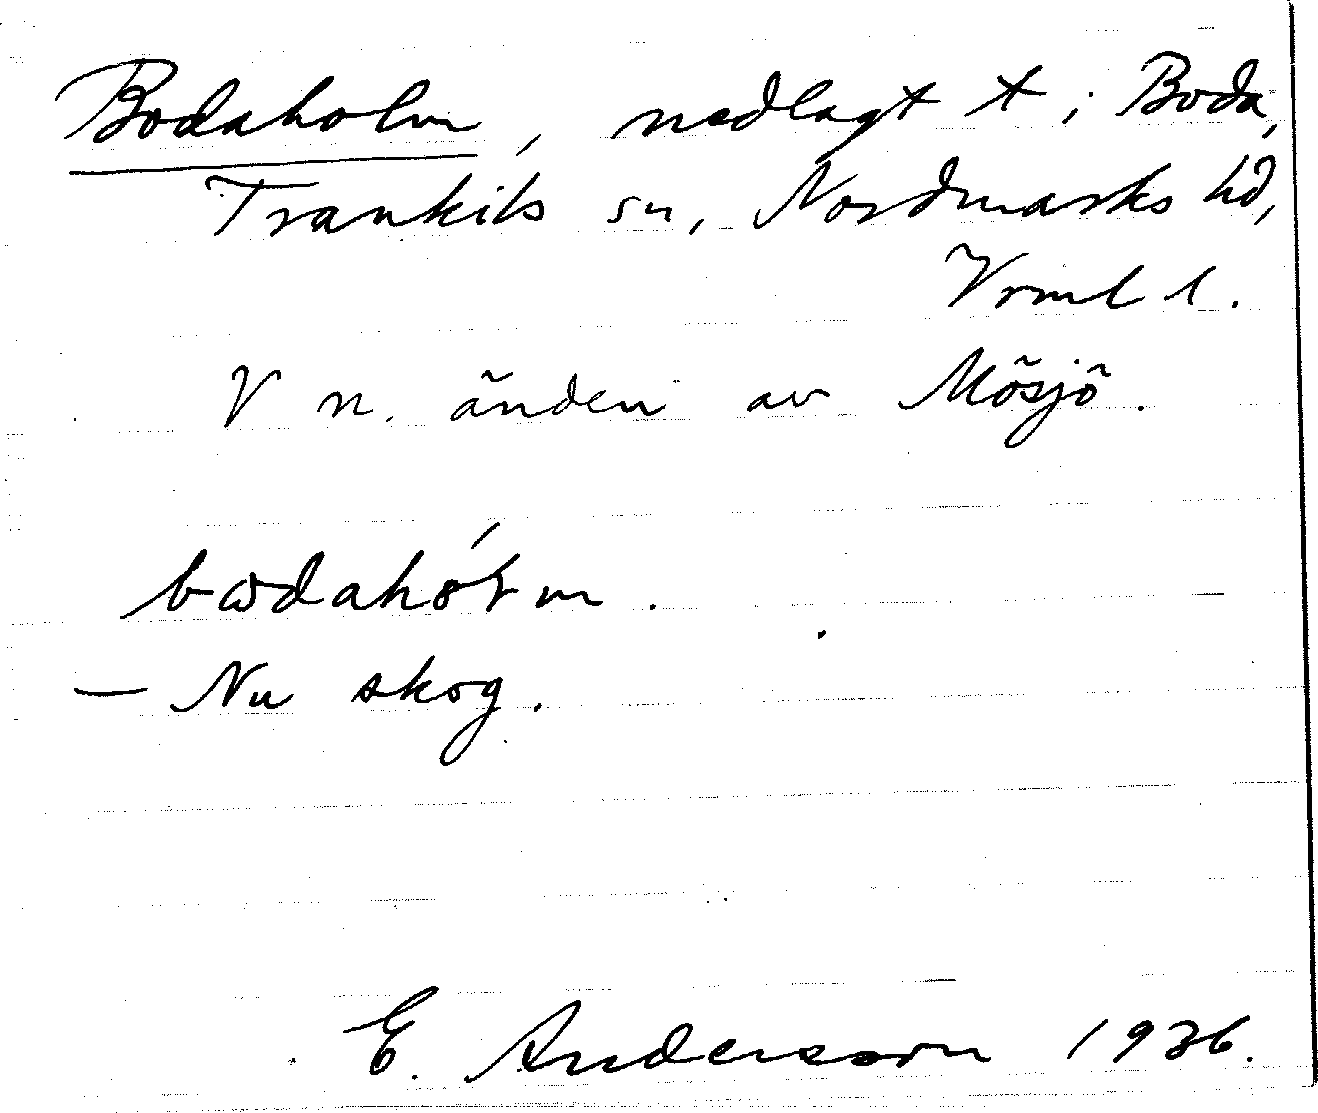 Bodaholm, nedlagt t i Boda,
Trankils sn, Nordmarks hd,
Vrml l.
V n. änden av Mösjö.
bωdahó̀ɽm.
— Nu skog.
E. Anderson 1936.